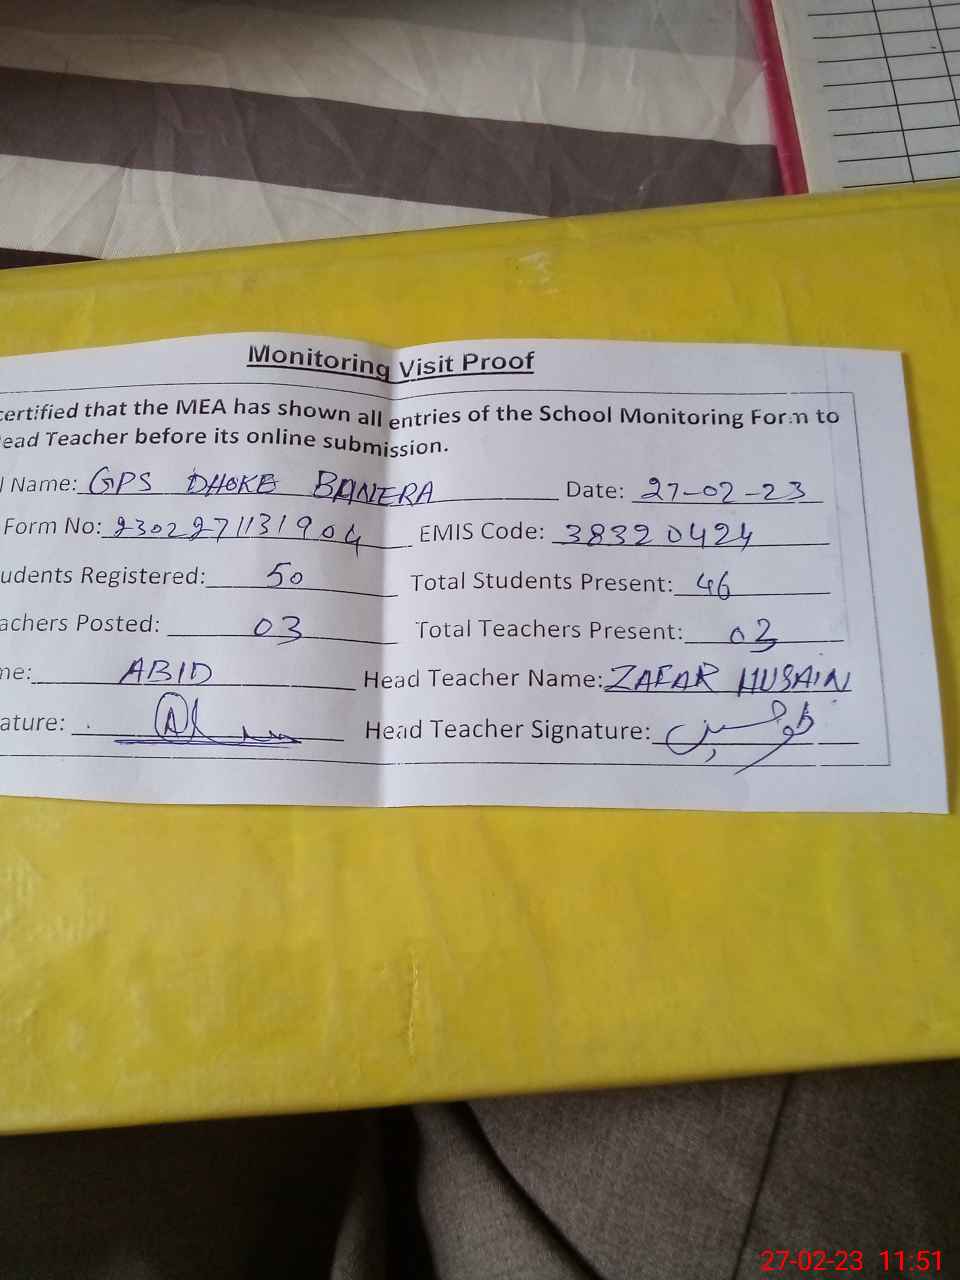 Monitoring Visit Proof
certified that the MEA has shown all entries of the School Monitoring Form to
ead Teacher before its online submission.
l Name: GPS DHOKE BANERA Date: 27-02-23
Form No: 2302271131904 EMIS Code: 38320424
udents Registered: 50 Total Students Present: 46
achers Posted: 03 Total Teachers Present: 03
me: ABID Head Teacher Name: ZAFAR HUSAIN
ature: Head Teacher Signature:
27-02-23 11:51